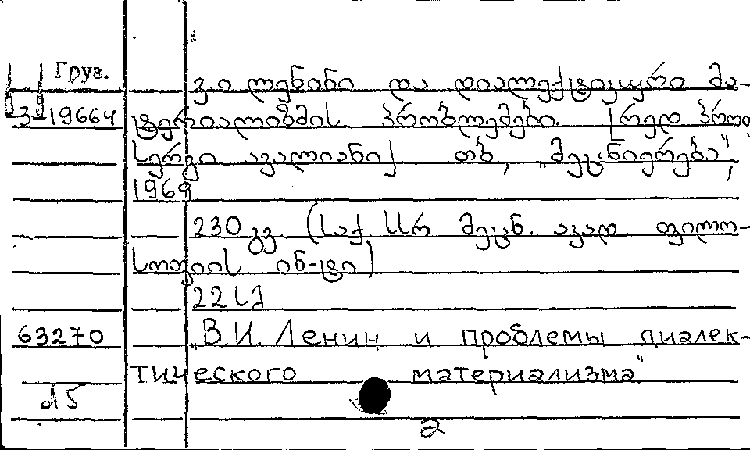 Груз.
ვ.ი. ლენინი და დიალექტიკური მა-
3-19664 ტერიალიზმის პრობლემები. [რედ. პროფ.
სერგი ავალიანი] თბ., „მეცნიერება",
1969
230 გვ. (საქ. სსრ მეცნ. აკად. ფილო-
სოფიის ინ-ტი)
22 სმ
63270 „В.И. Ленин и проблемы диалек-
тического материализма"
15
2